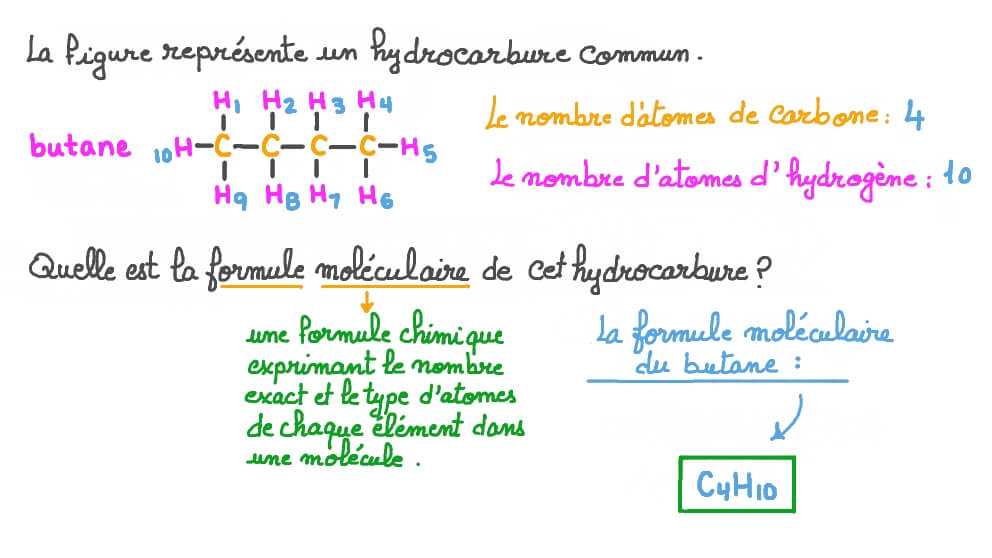 La figure représente un hydrocarbure commun.
H1 H2 H3 H4
butane 10H-C-C-C-C-H5
H9 H8 H7 H6
Le nombre d'atomes de carbone : 4
Le nombre d'atomes d'hydrogène : 10
Quelle est la formule moléculaire de cet hydrocarbure ?
une formule chimique
exprimant le nombre
exact et le type d'atomes
de chaque élément dans
une molécule .
La formule moléculaire
du butane :
C4H10